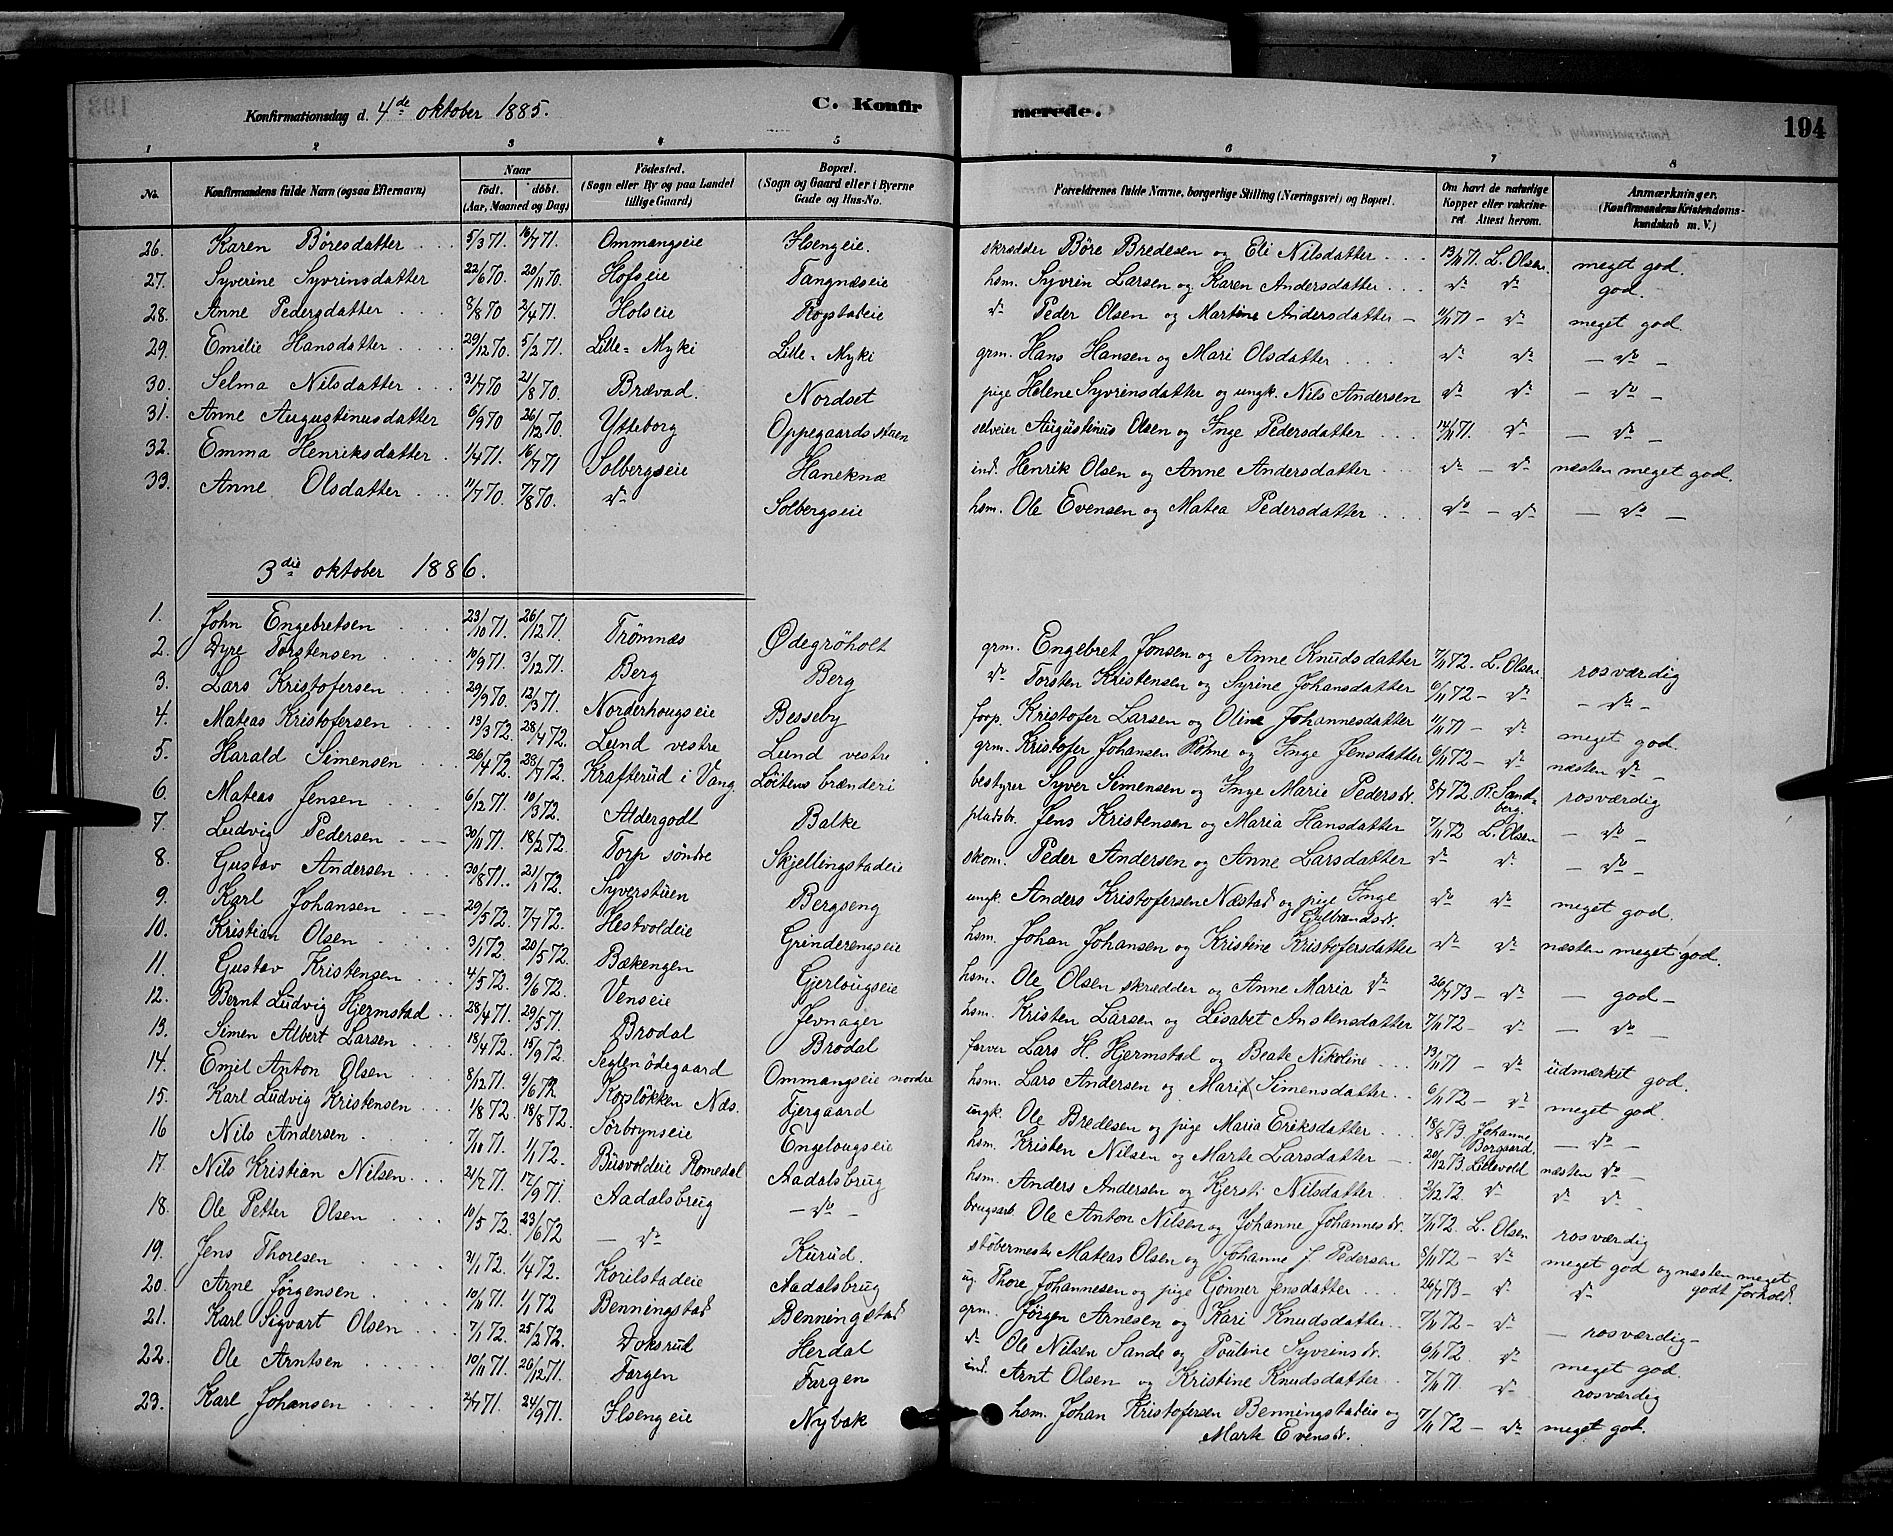 Konfirmationsdag d. 4de oktober 1885. C. Konfirmerede. 194
1 2 3 4 5 6 7 8
No. Konfirmandens fulde Navn (ogsaa Efternavn) Naar født. døbt. (Aar, Maaned og Dag) Fødested. (Sogn eller By og paa Landet tillige Gaard) Bopæl. (Sogn og Gaard eller i Byerne Gade og Hus-No. Forældrenes fulde Navne, borgerlige Stilling (Næringsvei) og Bopæl. Om havt de naturlige Kopper eller vakcineret. Attest herom. Anmærkninger. (Konfirmandens Kristendomskundskab m. V.)
26. Karen Böresdatter 5/3 71. 16/7 71. Ommangseie Ilsengeie. skrædder Böre Bredesen og Eli Nilsdatter 13/11 71. L. Olsen meget god.
27. Syverine Syvrinsdatter 22/6 70. 20/11 70. Hofseie Tangnæseie hsm. Syvrin Larsen og Karen Andersdatter do do god.
28. Anne Pedersdatter 8/8 70 2/4 71. Holseie Rogstadeie do Peder Olsen og Martine Andersdatter 11/11 71 - do meget god.
29. Emilie Hansdatter 29/12 70. 5/2 71. Lille-Myki Lille-Myki grm. Hans Hansen og Mari Olsdatter do do - do -
30. Selma Nilsdatter 31/7 70 21/8 70. Brævad. Nordset pige Helene Syvrinsdatter og ungk. Nils Andersen do do - do -
31. Anne Augustinusdatter 6/9 70 26/12 70. Ytteborg Oppegaardsstuen selveier Augustinus Olsen og Inge Pedersdatter 14/11 71. do - do -
32. Emma Henriksdatter 1/4 71. 16/7 71 Solbergseie Haneknæ ind. Henrik Olsen og Anne Andersdatter do - do næsten meget god.
33. Anne Olsdatter 11/7 70. 7/8 70. do Solbergseie hsm. Ole Evensen og Matea Pedersdatter do - do - do -
3die oktober 1886.
1. John Engebretsen 23/10 71. 26/12 71. Trömnæs Ødegröholt grm. Engebret Jonsen og Anne Knudsdatter 7/11 72. L. Olsen rosværdig
2. Dyre Torstensen 10/9 71. 3/12 71. Berg Berg do Torsten Kristensen og Syrine Johansdatter 6/11 72 - do - do -
3. Lars Kristofersen 29/9 70. 12/3 71. Norderhougseie Besseby forp. Kristofer Larsen og Oline Johannesdatter 11/11 71 - do meget god.
4. Mateas Kristofersen 13/3 72. 28/4 72. Lund vestre Lund vestre grm. Kristofer Johansen Röhne og Inge Jensdatter 6/11 72 - do næsten do -
5. Harald Simensen 26/4 72. 28/7 72. Krafterud i Vang Löitens brænderi bestyrer Syver Simensen og Inge Marie Pedersdr. 8/7 72 R. Sandberg rosværdig
6. Mateas Jensen 6/12 71. 10/3 72. Aldergodt Balke pladsbr. Jens Kristensen og Maria Hansdatter 7/11 72 L. Olsen - do -
7. Ludvig Pedersen 30/11 71. 18/2 72. Torp söndre Skjellingstadeie skom. Peder Andersen og Anne Larsdatter do do - do -
8. Gustav Andersen 30/8 71. 21/1 72. Syverstuen Bergseng ungk. Anders Kristofersen Næstad og pige Inge Gulbrandsdr. do do meget god.
9. Karl Johansen 29/5 72. 7/7 72. Hestvoldeie Grinderengseie hsm. Johan Johansen og Kristine Kristofersdatter do do næsten meget god.
10. Kristian Olsen 3/1 72. 20/5 72. Bækengen Gjerlougseie hsm. Ole Olsen skrædder og Anne Maria do 26/7 73 - do - god -
11. Gustav Kristensen 4/5 72. 9/6 72. Venseie Jevnager hsm. Kristen Larsen og Lisabet Anstensdatter 7/11 72 - do - do
12. Bernt Ludvig Hjermstad 28/4 71. 29/5 71. Brodal Brodal farver Lars H. Hjermstad og Beate Nikoline 13/11 71 - do udmærket god.
13. Simen Albert Larsen 18/4 72. 15/9 72. Seglenödegaard Ommangseie nordre hsm. Lars Andersen og Mari Simensdatter 6/11 72 - do meget god.
14. Emil Anton Olsen 8/12 71. 9/6 72 Korslökken Næs. Fjergaard ungk. Ole Bredesen og pige Maria Eriksdatter 18/8 73. Johanne Borgaard - do -
15. Karl Ludvig Kristensen 1/8 72. 18/8 72. Sörbrynseie Engelougseie hsm. Kristen Nilsen og Marte Larsdatter 20/12 73. Lillevold næsten do -
16 Nils Andersen 7/10 71. 1/1 72. Busvoldeie Romedal Aadalsbrug hsm. Anders Andersen og Kjersti Nilsdatter 2/12 72. do do do
17. Nils Kristian Nilsen 21/7 71. 17/9 71. Aadalsbrug - do - brugsarb. Ole Anton Nilsen og Johanne Johannesdr. 7/11 72. L. Olsen rosværdig
18. Ole Petter Olsen 10/5 72. 23/6 72 - do Kurud. stöbermester Mateas Olsen og Johanne J. Pedersen 8/11 72 - do meget god og næsten meget godt forhold.
19. Jens Thoresen 31/1 72. 1/4 72. Korilstadeie Aadalsbrug ug. Thore Johannesen og pige Gönner Jensdatter 26/7 73 - do do
20. Arne Jørgensen 10/11 71. 1/1 72 Benningstad Benningstad grm. Jørgen Arnesen og Kari Knudsdatter 7/11 72 - do - rosværdig -
21. Karl Sigvart Olsen 7/1 72. 25/2 72. Doksrud Herdal do Ole Nilsen Sande og Pouline Syvrinsdr. 6/11 72 do meget god.
22. Ole Arntsen 10/11 71. 26/12 71. Fargen Fargen ind. Arnt Olsen og Kristine Knudsdatter 7/11 71. do rosværdig
23. Karl Johansen 2/7 71. 24/9 71. Ilsengeie Nybak hsm. Johan Kristofersen Benningstadeie og Marte Evensdr. 7/11 72 - do meget god.